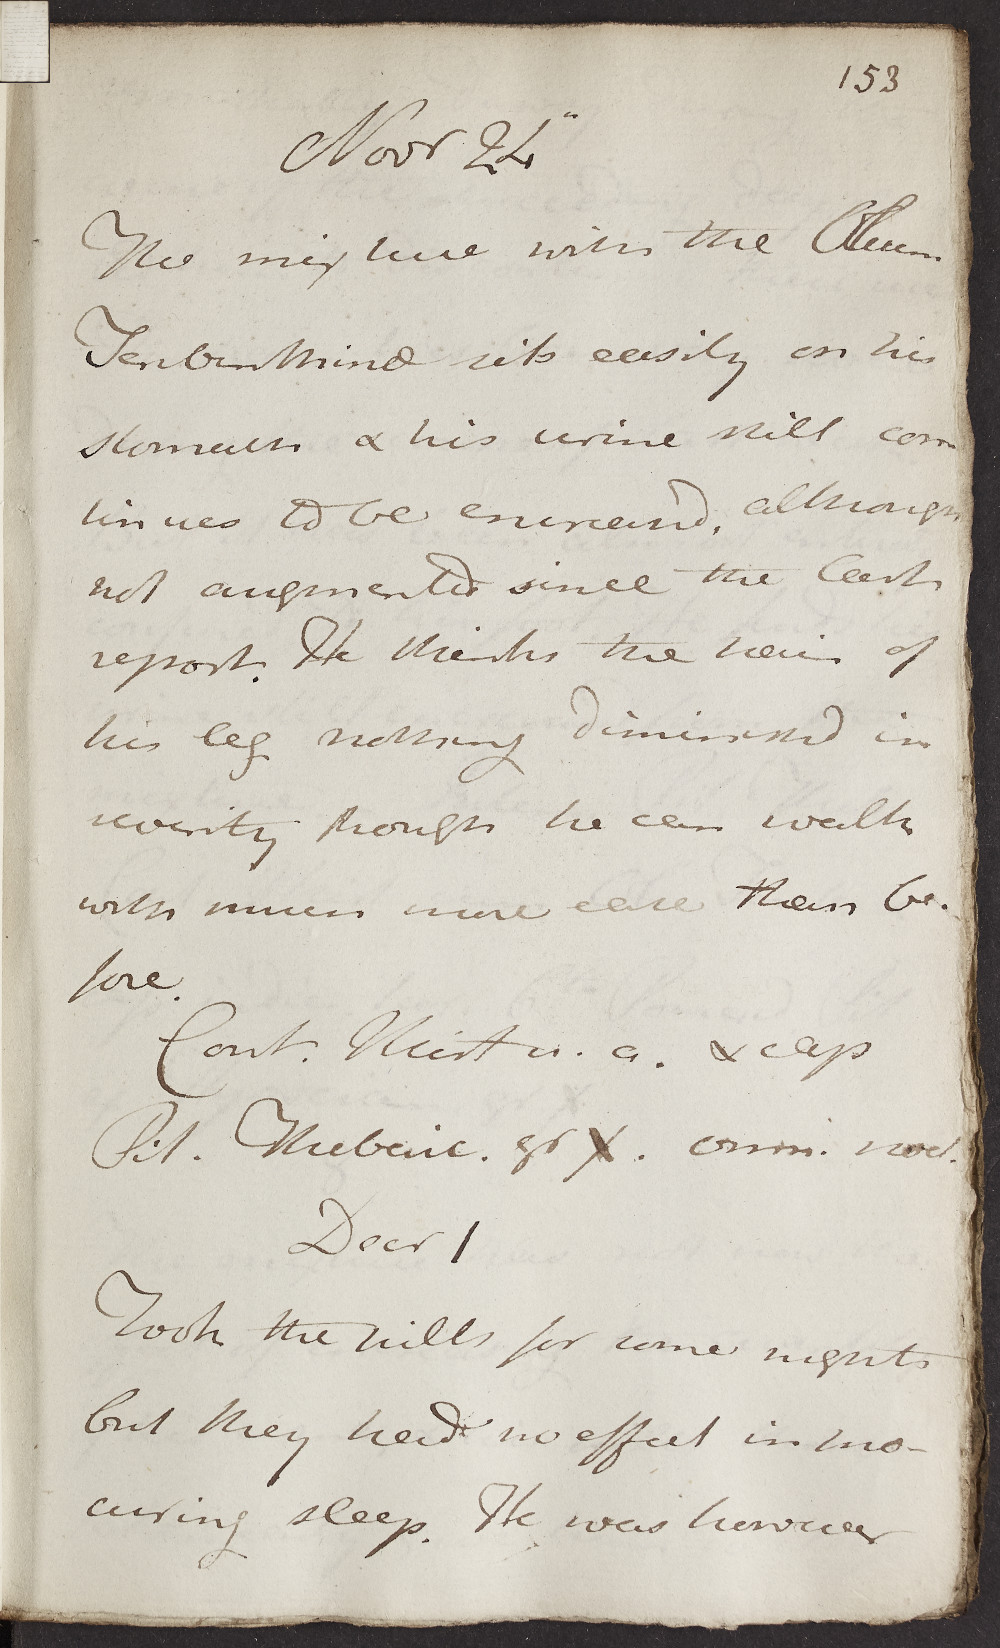 153
Novr 24"
The mixture with the Oleum
Terebinthina sits easily on his
stomach & his urine still con
tinues to be encreas'd, although
not augmented since the last
report. He thinks the pain of
his leg nothing diminished in
severity though he can walk
with much more ease than be-
fore.
Cont. Mistu. a. & cap
Pil. Thebaic. gr X. omn. noct.
Decr 1
Took the pills for some nights
but they had no effect in pro-
curing sleep. He was however